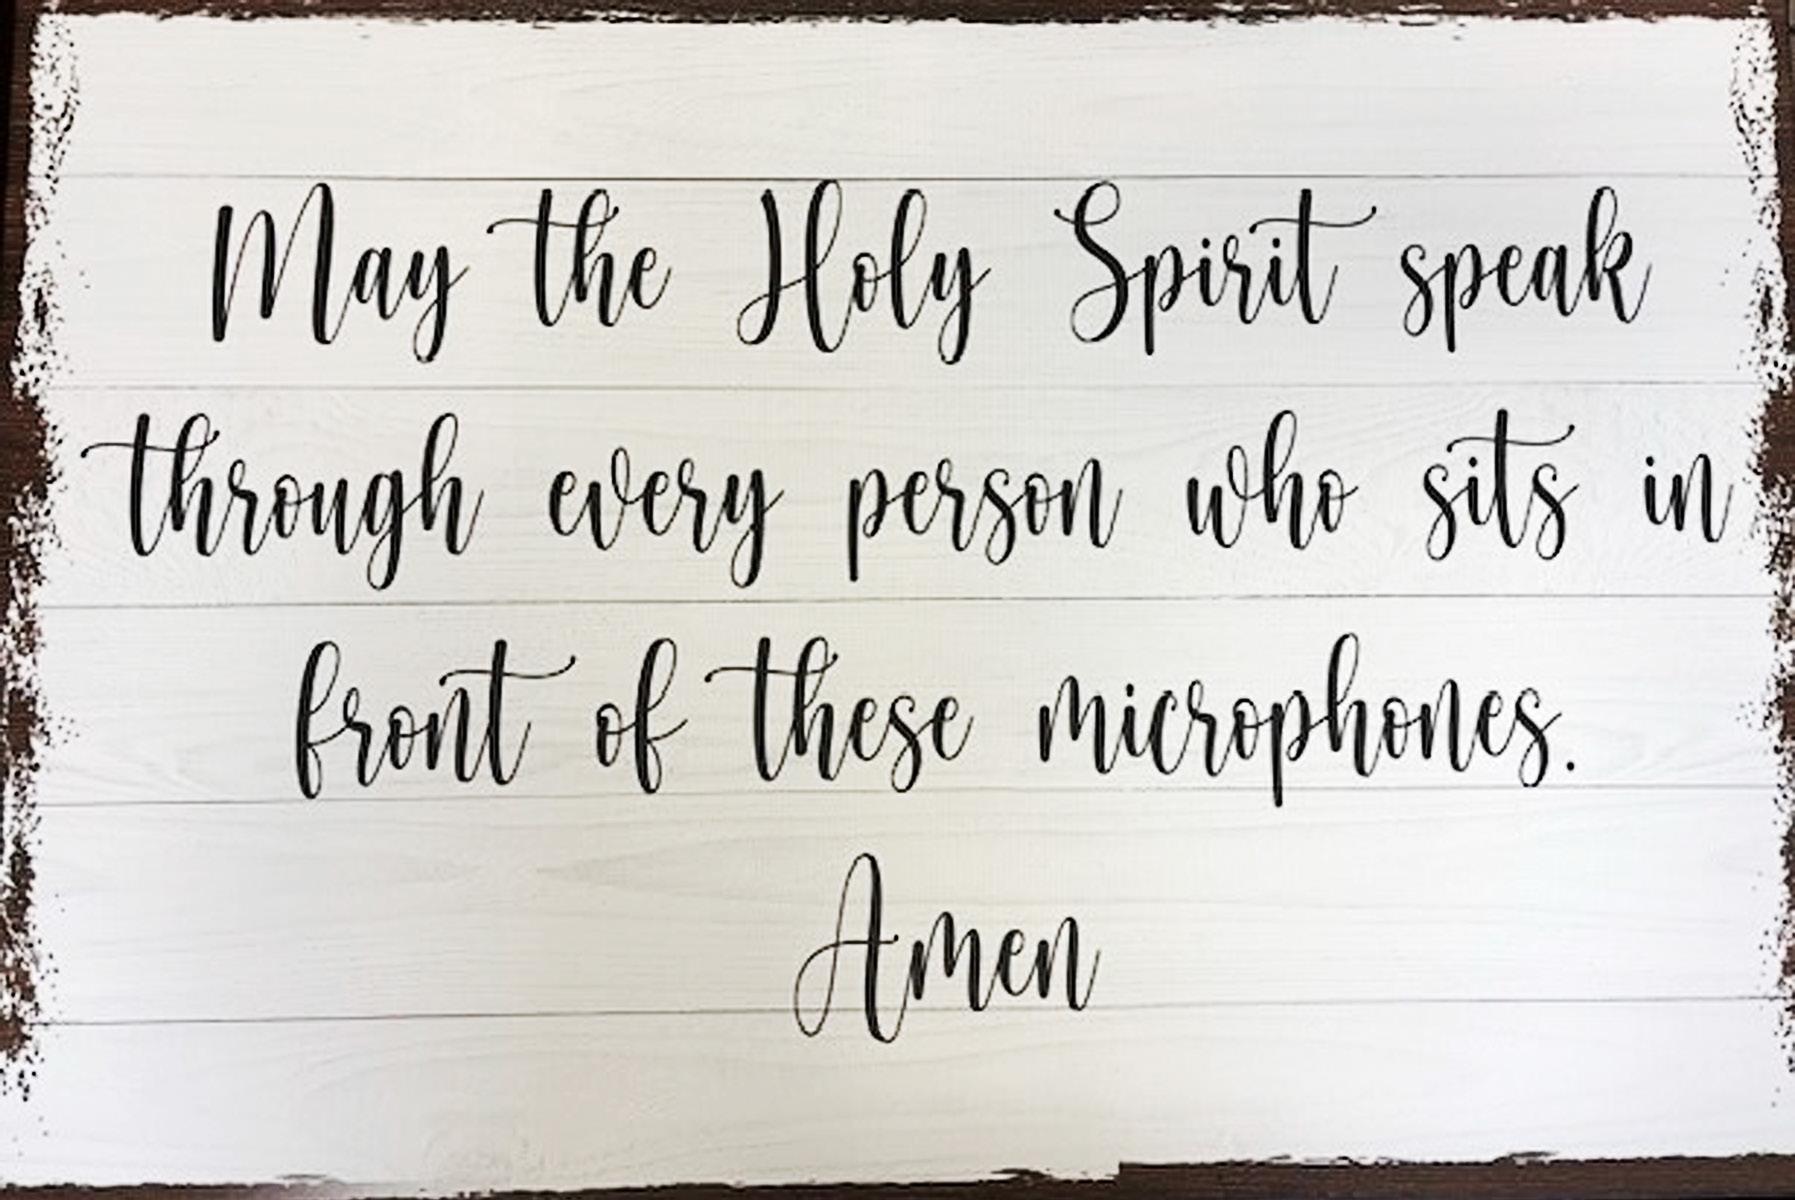 May the Holy Spirit speak
through every person who sits in
front of these microphones.
Amen